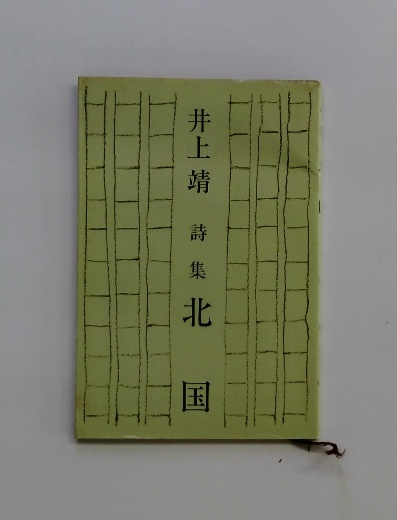 井上靖 詩集 北国